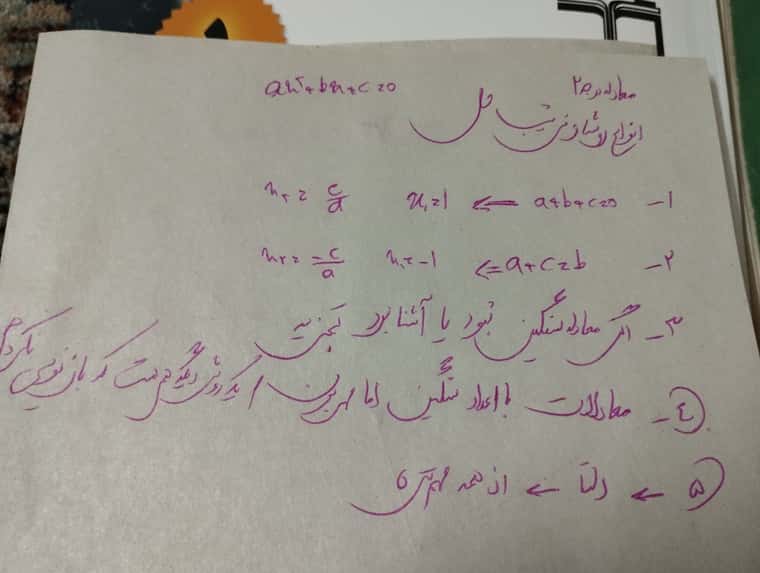 معادله درجه ۲ ax²+bx+c=0
انواع روشها و ترتیب حل
1- a+b+c=0 ← x₁=1 x₂=c/a
۲- a+c=b ⇐ x₁=-1 x₂=-c/a
۳- اگر معادله سنگین نبود یا آشنا بود تجزیه
٤- معادلات با اعداد سنگین اما یک روش دیگه هم هست که
۵ ← دلتا ← از همه مهم‌تر